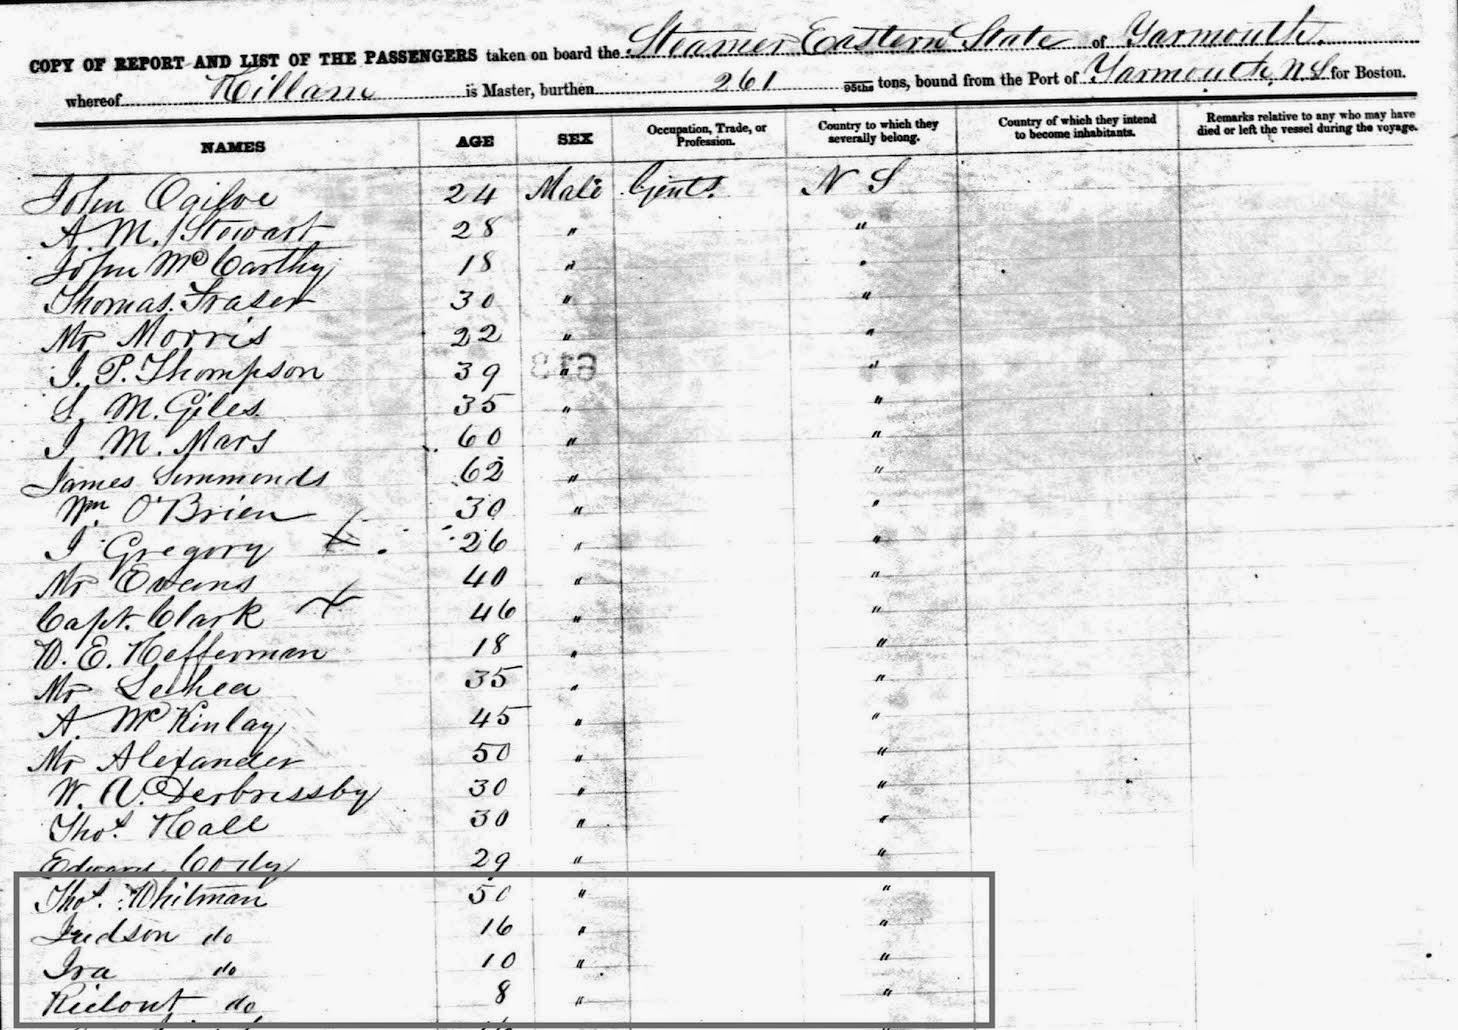 COPY OF REPORT AND LIST OF THE PASSENGERS taken on board the Steamer Eastern State of Yarmouth.
whereof Killam is Master, burthen 261 95ths tons, bound from the Port of Yarmouth, N S for Boston.
NAMES AGE SEX Occupation, Trade, or Profession. Country to which they severally belong. Country of which they intend to become inhabitants. Remarks relative to any who may have died or left the vessel during the voyage.
John Ogilve 24 Male Gents. N S
A. M. Stewart 28 " "
John McCarthy 18 " "
Thomas Fraser 30 " "
Mr Morris 22 " "
J. P. Thompson 39 " "
S. M. Giles 35 " "
J M. Mars 60 " "
James Simmonds 62 " "
Wm O'Brien 30 " "
J Gregory X 26 " "
Mr Evans 40 " "
Capt. Clark X 46 " "
W. E. Heffernan 18 " "
Mr 35 " "
A. McKinlay 45 " "
Mr Alexander 50 " "
W. A. 30 " "
Thos. Hall 30 " "
Edward Cody 29 " "
Thos. Whitman 50 " "
Judson do 16 " "
Ira do 10 " "
Rielout do 8 " "